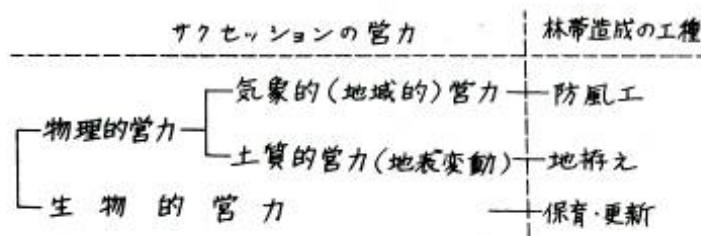 サクセッションの営力 林帯造成の工種
気象的(地域的)営力 防風工
物理的営力
土質的営力(地表変動) 地拵え
生物的営力 保育・更新